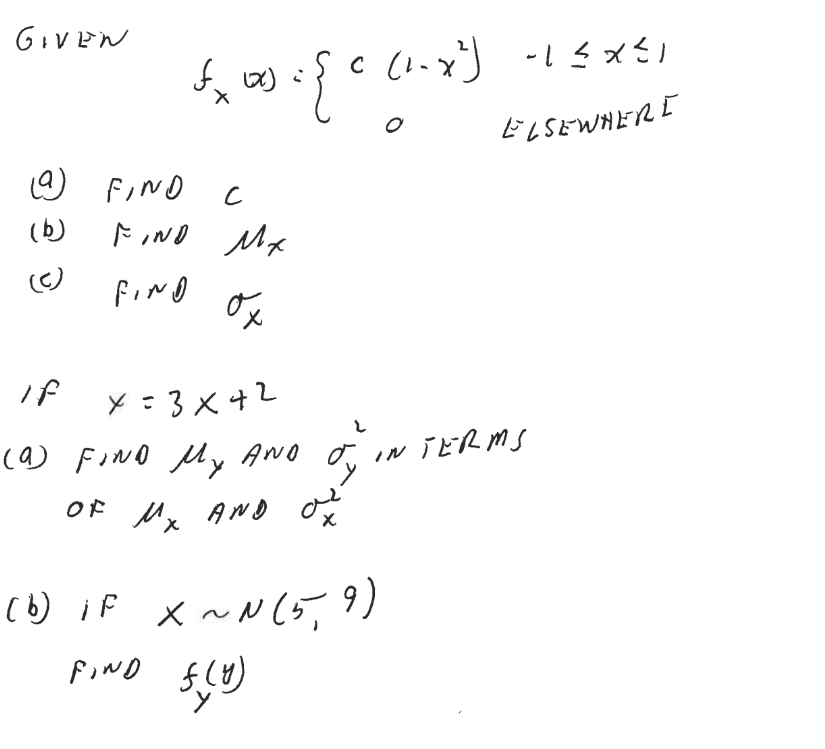 GIVEN
f_x (x) = { c (1-x²) -1 ≤ x ≤ 1
0 ELSEWHERE
(a) FIND c
(b) FIND μ_x
(c) FIND σ_x
IF Y = 3X + 2
(a) FIND μ_y AND σ_y² IN TERMS
OF μ_x AND σ_x²
(b) IF X ~ N(5, 9)
FIND f_y(y)